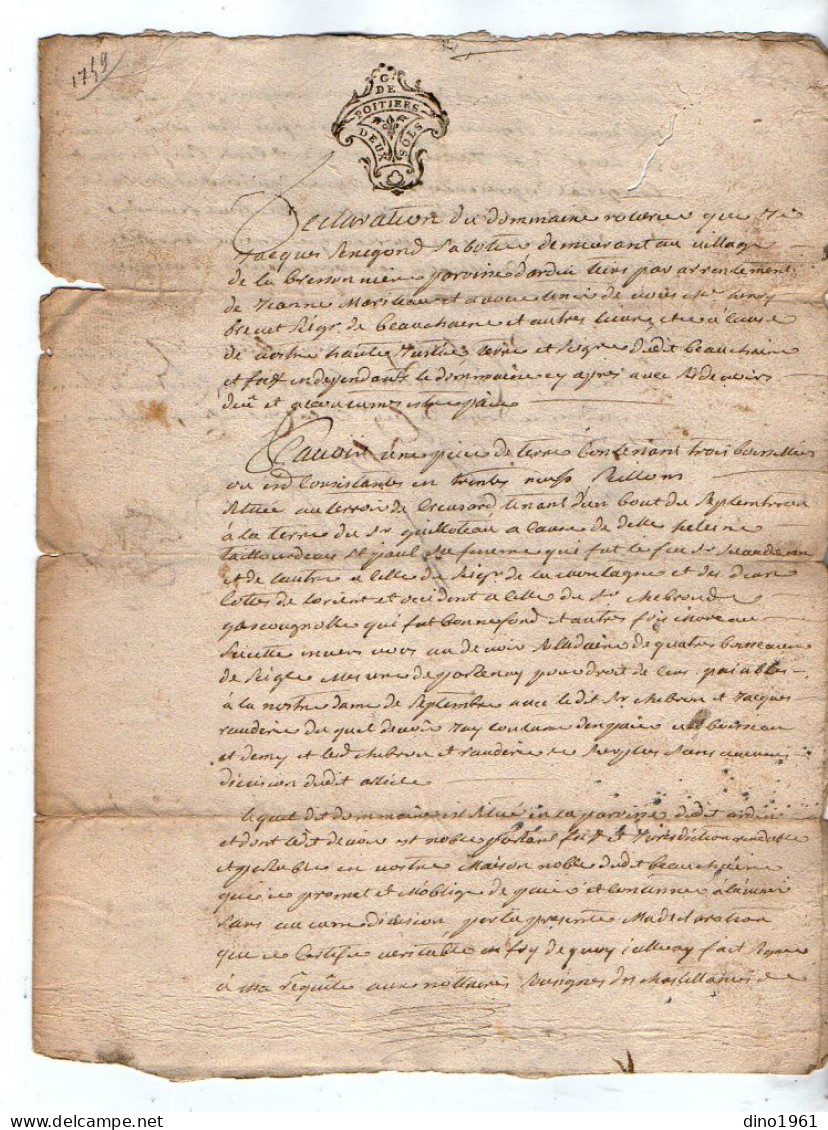 1749
G.
DE
POITIERS
DEUX SOLS
Declaration du dommaine roturie que Je
Jacques Senegond Sabotie demeurant au village
de la Bressonniere paroisse d'ardin tiens par arrentement
de Jeanne Marsteau et avoue tenir de vous Mr
Seigr. de beauchaine et autres lieux et a cause
de vostre haute Justice terre et Seigrie dudit beauchaine
et fief en dependants le dommaine cy apres avec
deu et accoutumes estre paié
Scavoir une piece de terre Contenant trois boisselles
ou en Consistantes en trente neuf Sillons
Située au terroir de tenant d'un bout du Septemtrion
à la terre du Sr guilloteau a cause de delle helesne
St paul Sa femme qui fut le feu Sr
et de l'autre a celle du Seigr de la montagne et des deux
Cotes de l'orient et occident a celle du Sr Chebrou de
gascougnolle qui fut bonnefond et autres fois
Sujette envers vous au devoir Sollidaire de quatre boisseaux
de Seigle Mesure de partenay pour droit de Cens paiables
à la nostre dame de Septembre avec ledit Sr Chebrou et Jacques
du quel devoir J'ay coutume d'en paie un boisseau
et demy et lesd Chebrou et le Surplus Sans aucune
division dudit article
lequel dit dommaine est Situé en la paroisse dudit ardin
et dont ledit devoir est noble portant fief et Jurisdiction rendable
et portable en vostre Maison noble dudit beauchaine
que je promet et M'oblige de paié et Continue à l'avenir
Sans aucune division, par la presente Ma declaration
que je Certifie veritable en foy de quoy je l'ay fait Signe
à Ma requête aux nottaires Sousignes des Chastellanies de
dino1961